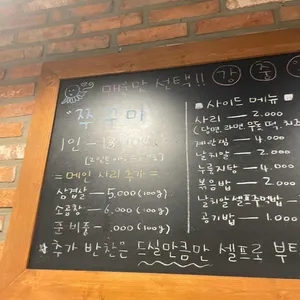 매운맛 선택!! 강 중
쭈꾸미
1인 - 13
= 메인 사리 추가 =
삼겹살 - 5,000 (100g)
소곱창 - 6,000 (100g)
,000 (100g)
사이드 메뉴
사리 - 2.000
(당면, 라면, 우동, 떡, 치즈
계란찜 - 4.000
날치알 - 2.000
누룽지탕 - 4.000
볶음밥 - 2.000
날치알 셀프주먹밥 -
공기밥 - 1.000
추가 반찬은 드실만큼만 셀프로 부탁